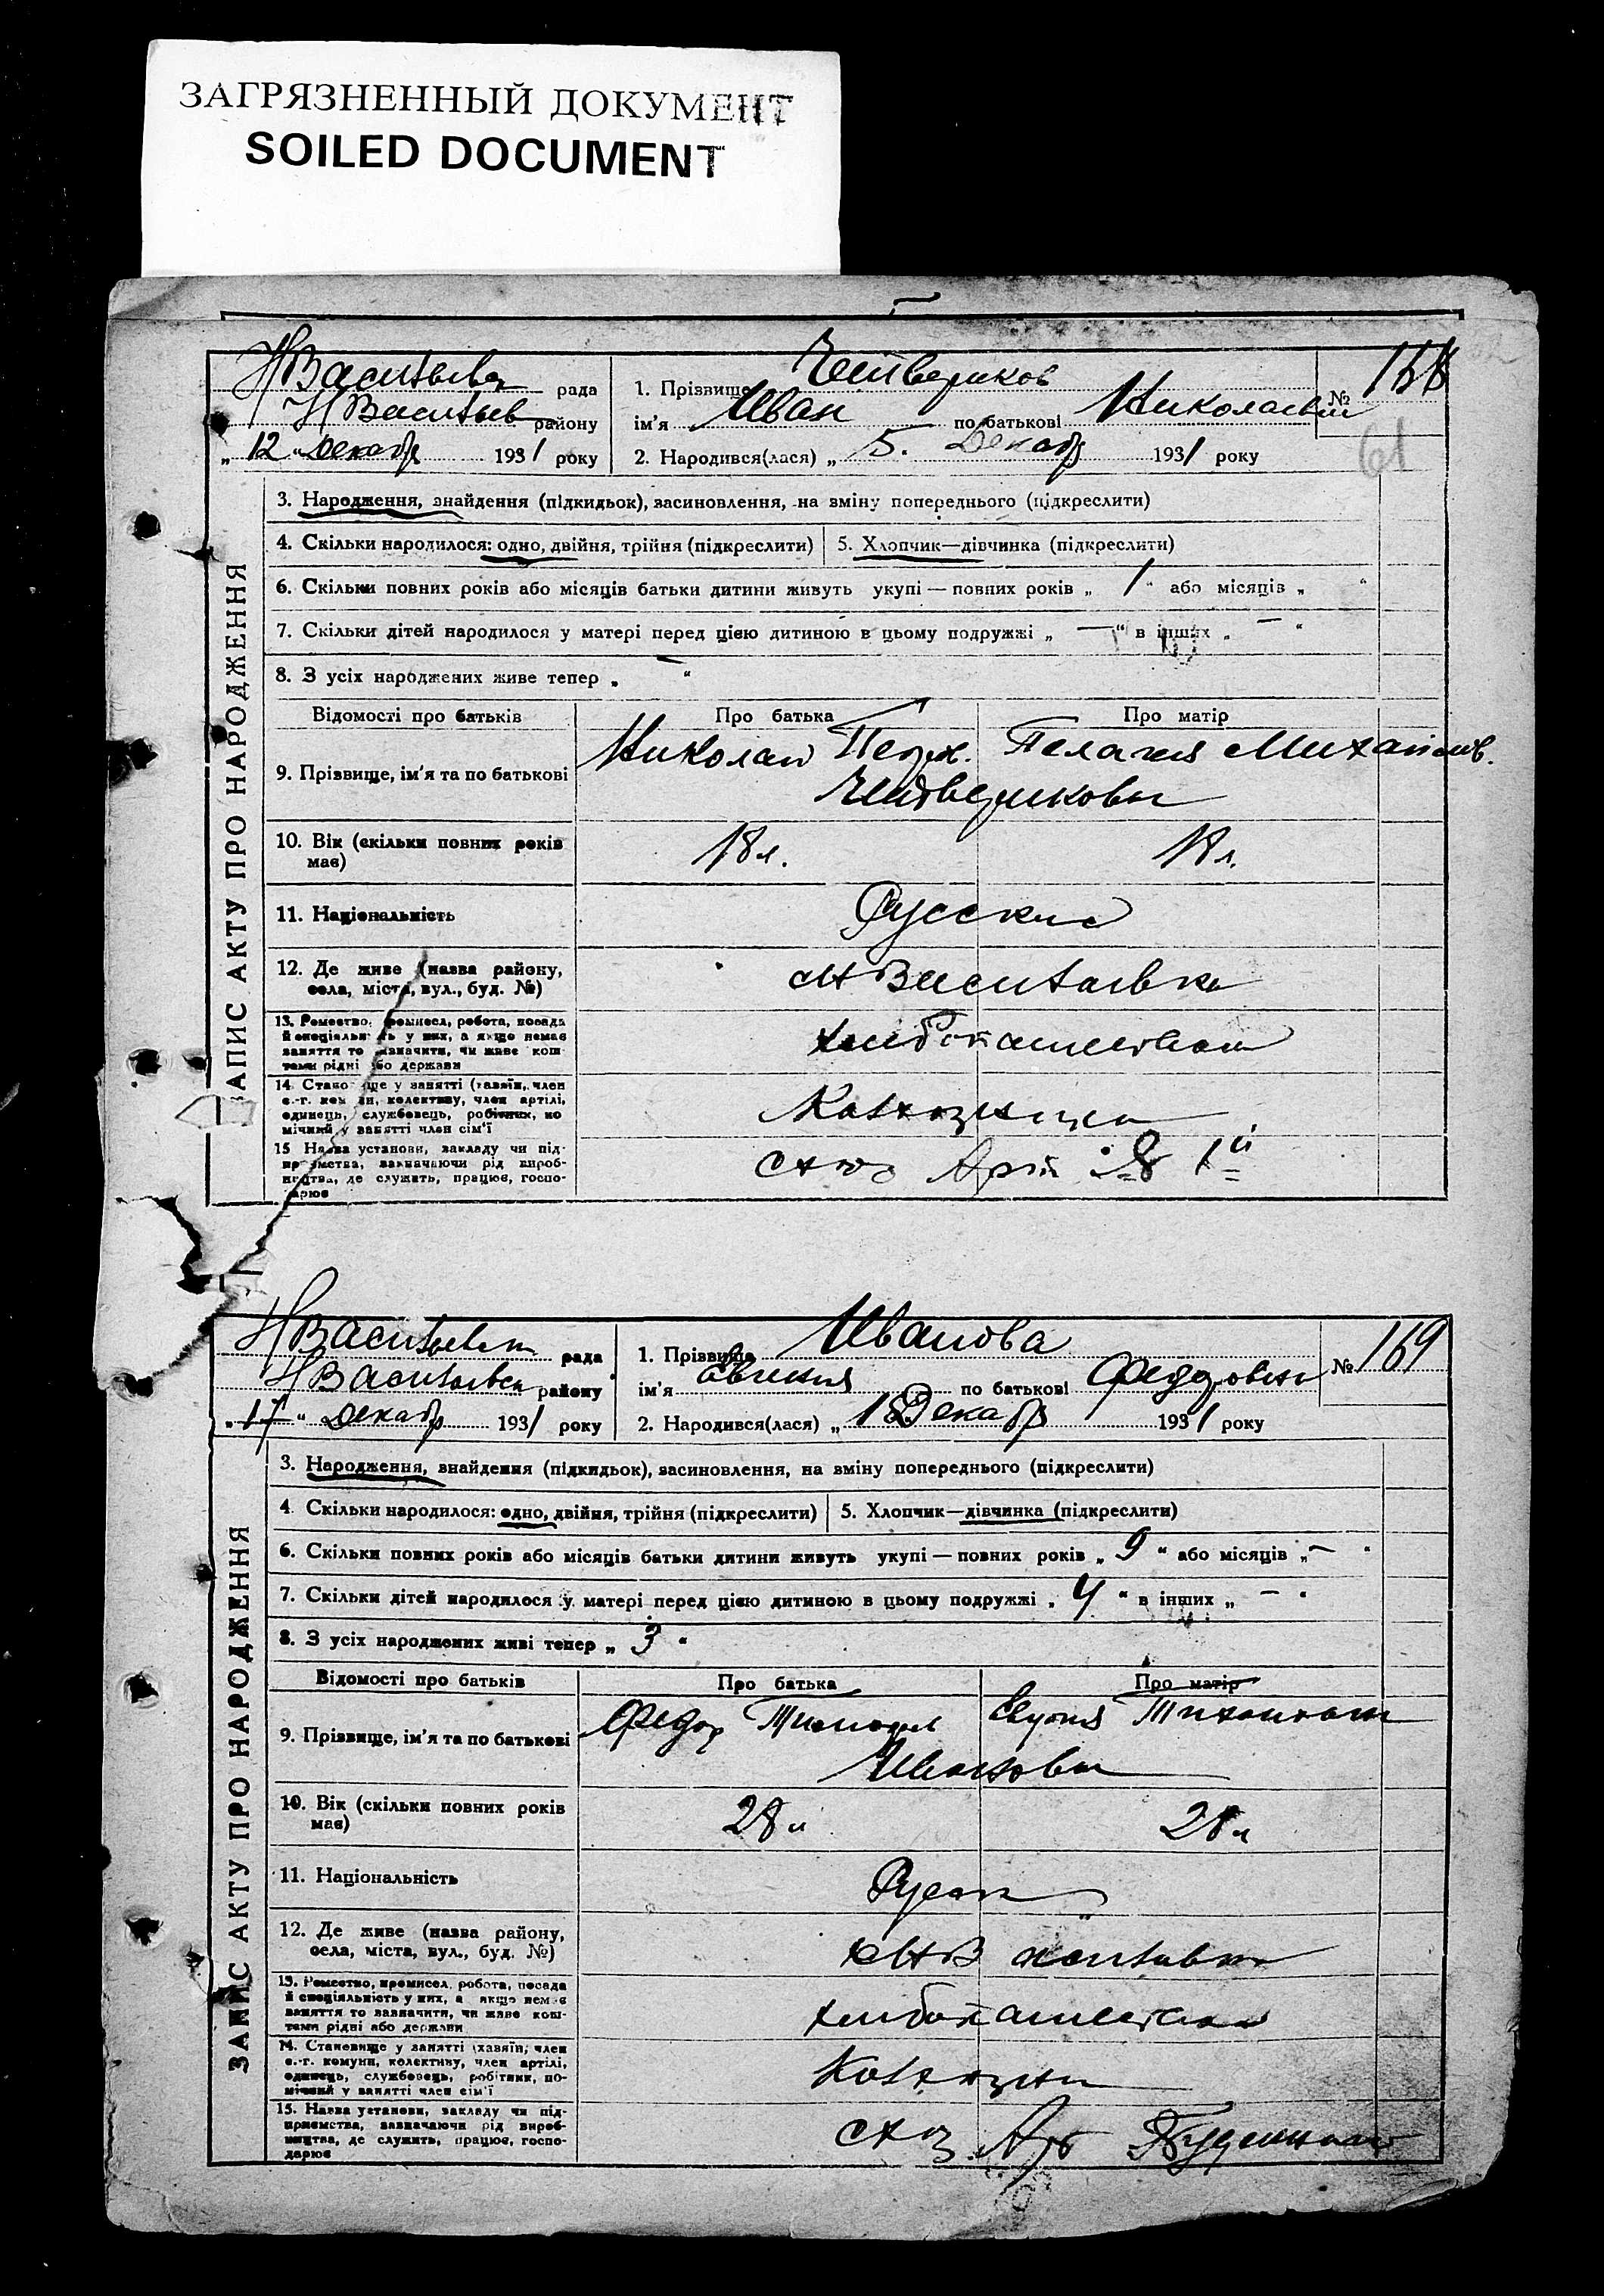 ЗАГРЯЗНЕННЫЙ ДОКУМЕНТ
SOILED DOCUMENT
рада
району
„ 12 " Декабр 1931 року
1. Прізвище Четвериков
ім'я Иван по батькові Николаевич
2. Народився(лася) „ 5. Декабр 1931 року
№ 168
61
ЗАПИС АКТУ ПРО НАРОДЖЕННЯ
3. Народження, знайдення (підкидьок), засиновлення, на зміну попереднього (підкреслити)
4. Скільки народилося: одно, двійня, трійня (підкреслити)
5. Хлопчик—дівчинка (підкреслити)
6. Скільки повних років або місяців батьки дитини живуть укупі — повних років „ 1 " або місяців „ "
7. Скільки дітей народилося у матері перед цією дитиною в цьому подружжі „ — " в інших „ — "
8. З усіх народжених живе тепер „ — "
Відомості про батьків Про батька Про матір
9. Прізвище, ім'я та по батькові
Николай Пелагия Михайлов.
Четвериковы
10. Вік (скільки повних років має)
18 л. 18 л.
11. Національність
Русские
12. Де живе (назва району, села, міста, вул., буд. №)
13. Ремество, промисел, робота, посада й спеціяльність у них, а якщо немає заняття то зазначити, чи живе коштами рідні або держави
14. Становище у занятті (хазяїн, член с.-г. комуни, колективу, член артілі, одинець, службовець, робітник, помічний у занятті член сім'ї
15. Назва установи, закладу чи підприємства, зазначаючи рід виробництва, де служить, працює, господарює
рада
району
„ 17 " Декабр 1931 року
1. Прізвище Иванова
ім'я по батькові Федоровна
2. Народився(лася) „ Декабр 1931 року
№ 169
ЗАПИС АКТУ ПРО НАРОДЖЕННЯ
3. Народження, знайдення (підкидьок), засиновлення, на зміну попереднього (підкреслити)
4. Скільки народилося: одно, двійня, трійня (підкреслити)
5. Хлопчик—дівчинка (підкреслити)
6. Скільки повних років або місяців батьки дитини живуть укупі — повних років „ 9 " або місяців „ — "
7. Скільки дітей народилося у матері перед цією дитиною в цьому подружжі „ 4 " в інших „ — "
8. З усіх народжених живі тепер „ 3 "
Відомості про батьків Про батька Про матір
9. Прізвище, ім'я та по батькові
Федор
Ивановы
10. Вік (скільки повних років має)
28 л 28 л
11. Національність
12. Де живе (назва району, села, міста, вул., буд. №)
13. Ремество, промисел, робота, посада й спеціяльність у них, а якщо немає заняття то зазначити, чи живе коштами рідні або держави
14. Становище у занятті (хазяїн, член с.-г. комуни, колективу, член артілі, одинець, службовець, робітник, помічний у занятті член сім'ї
15. Назва установи, закладу чи підприємства, зазначаючи рід виробництва, де служить, працює, господарює